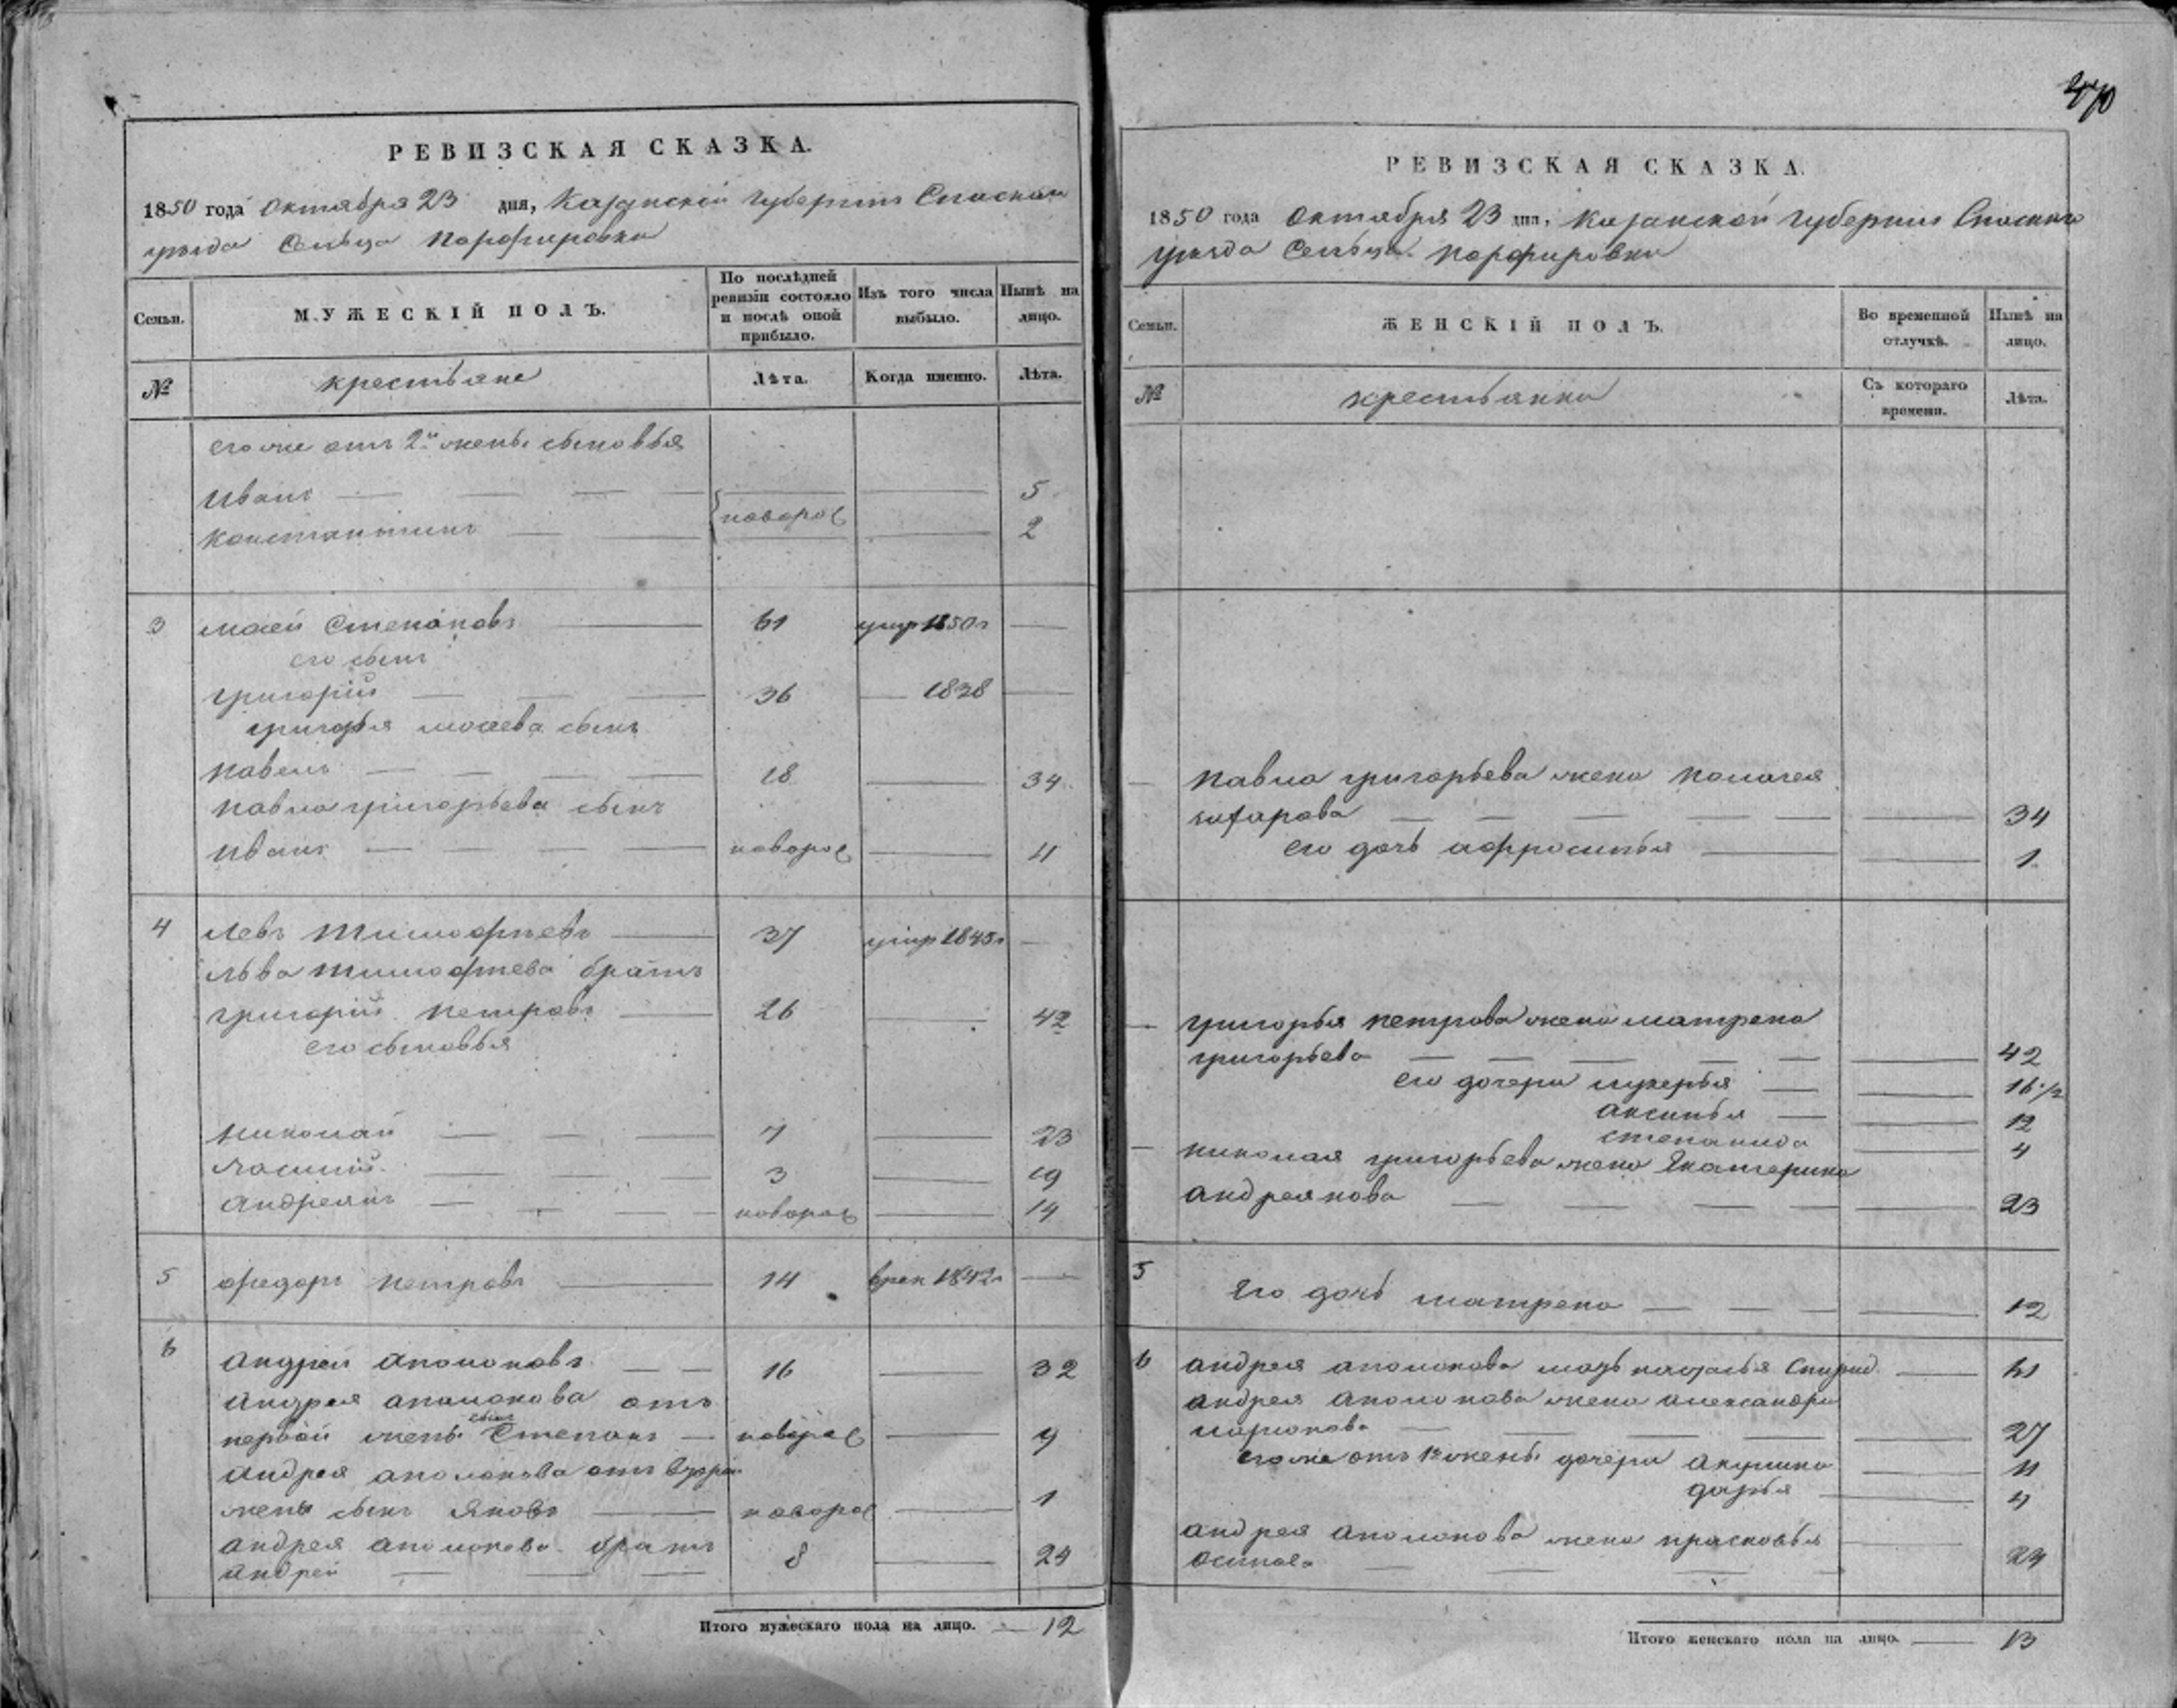 470
РЕВИЗСКАЯ СКАЗКА.
1850 года Октября 23 дня, Казанской Губернии Спаскаго
уѣзда Сельца Порфировки
Семьи.
МУЖЕСКІЙ ПОЛЪ.
По послѣдней ревизіи состояло и послѣ оной прибыло.
Изъ того числа выбыло.
Нынѣ на лицо.
№
крестьяне
Лѣта.
Когда именно.
Лѣта.
его же отъ 2й жены сыновья
Иванъ — — — новорож — 5
Константинъ — — 2
3 Мосей Степановъ — 61 умр 1850г —
его сынъ
Григорій — — — 36 — 1838 —
Григорья Мосева сынъ
Павелъ — — — — 18 — 34
Павла Григорьева сынъ
Иванъ — — — — новорож — 4
4 Левъ Тимофѣевъ — 37 умр 1845г —
Льва Тимофѣева братъ
Григорій Петровъ — 26 — 42
его сыновья
Николай — — — 7 — 23
— — — 3 — 19
Андреянъ — — — — новорож — 14
5 Федоръ Петровъ — 14 1842г —
6 Андрей Аполоновъ — — 16 — 32
Андрея Аполонова отъ
первой жены сынъ Степанъ — новорож — 9
Андрея Аполонова отъ второй
жены сынъ Яковъ — новорож — 1
Андрея Аполонова братъ
Андрей — — — 8 — 24
Итого мужескаго пола на лицо. — 12
РЕВИЗСКАЯ СКАЗКА.
1850 года Октября 23 дня, Казанской Губернии Спаскаго
уѣзда Сельца Порфировки
Семьи.
ЖЕНСКІЙ ПОЛЪ.
Во временной отлучкѣ.
Нынѣ на лицо.
№
крестьянки
Съ котораго времени.
Лѣта.
— Павла Григорьева жена Палагея
— — — — — — 34
его дочь Афросинья — — 1
— Григорья Петрова жена Матрена
Григорьева — — — — — — 42
его дочери Лукерья — — 16 1/2
Аксинья — — 12
Степанида — 4
— Николая Григорьева жена Екатерина
Андреянова — — — — — 23
5 Его дочь Матрена — — — — 12
6 Андрея Аполонова мать Наталья Спирид — 61
Андрея Аполонова жена Александра
— — — — — 27
его же отъ 1й жены дочери Акулина — 11
Дарья — 4
Андрея Аполонова жена Прасковья —
Осипова — — — — 24
Итого женскаго пола на лицо. — 13